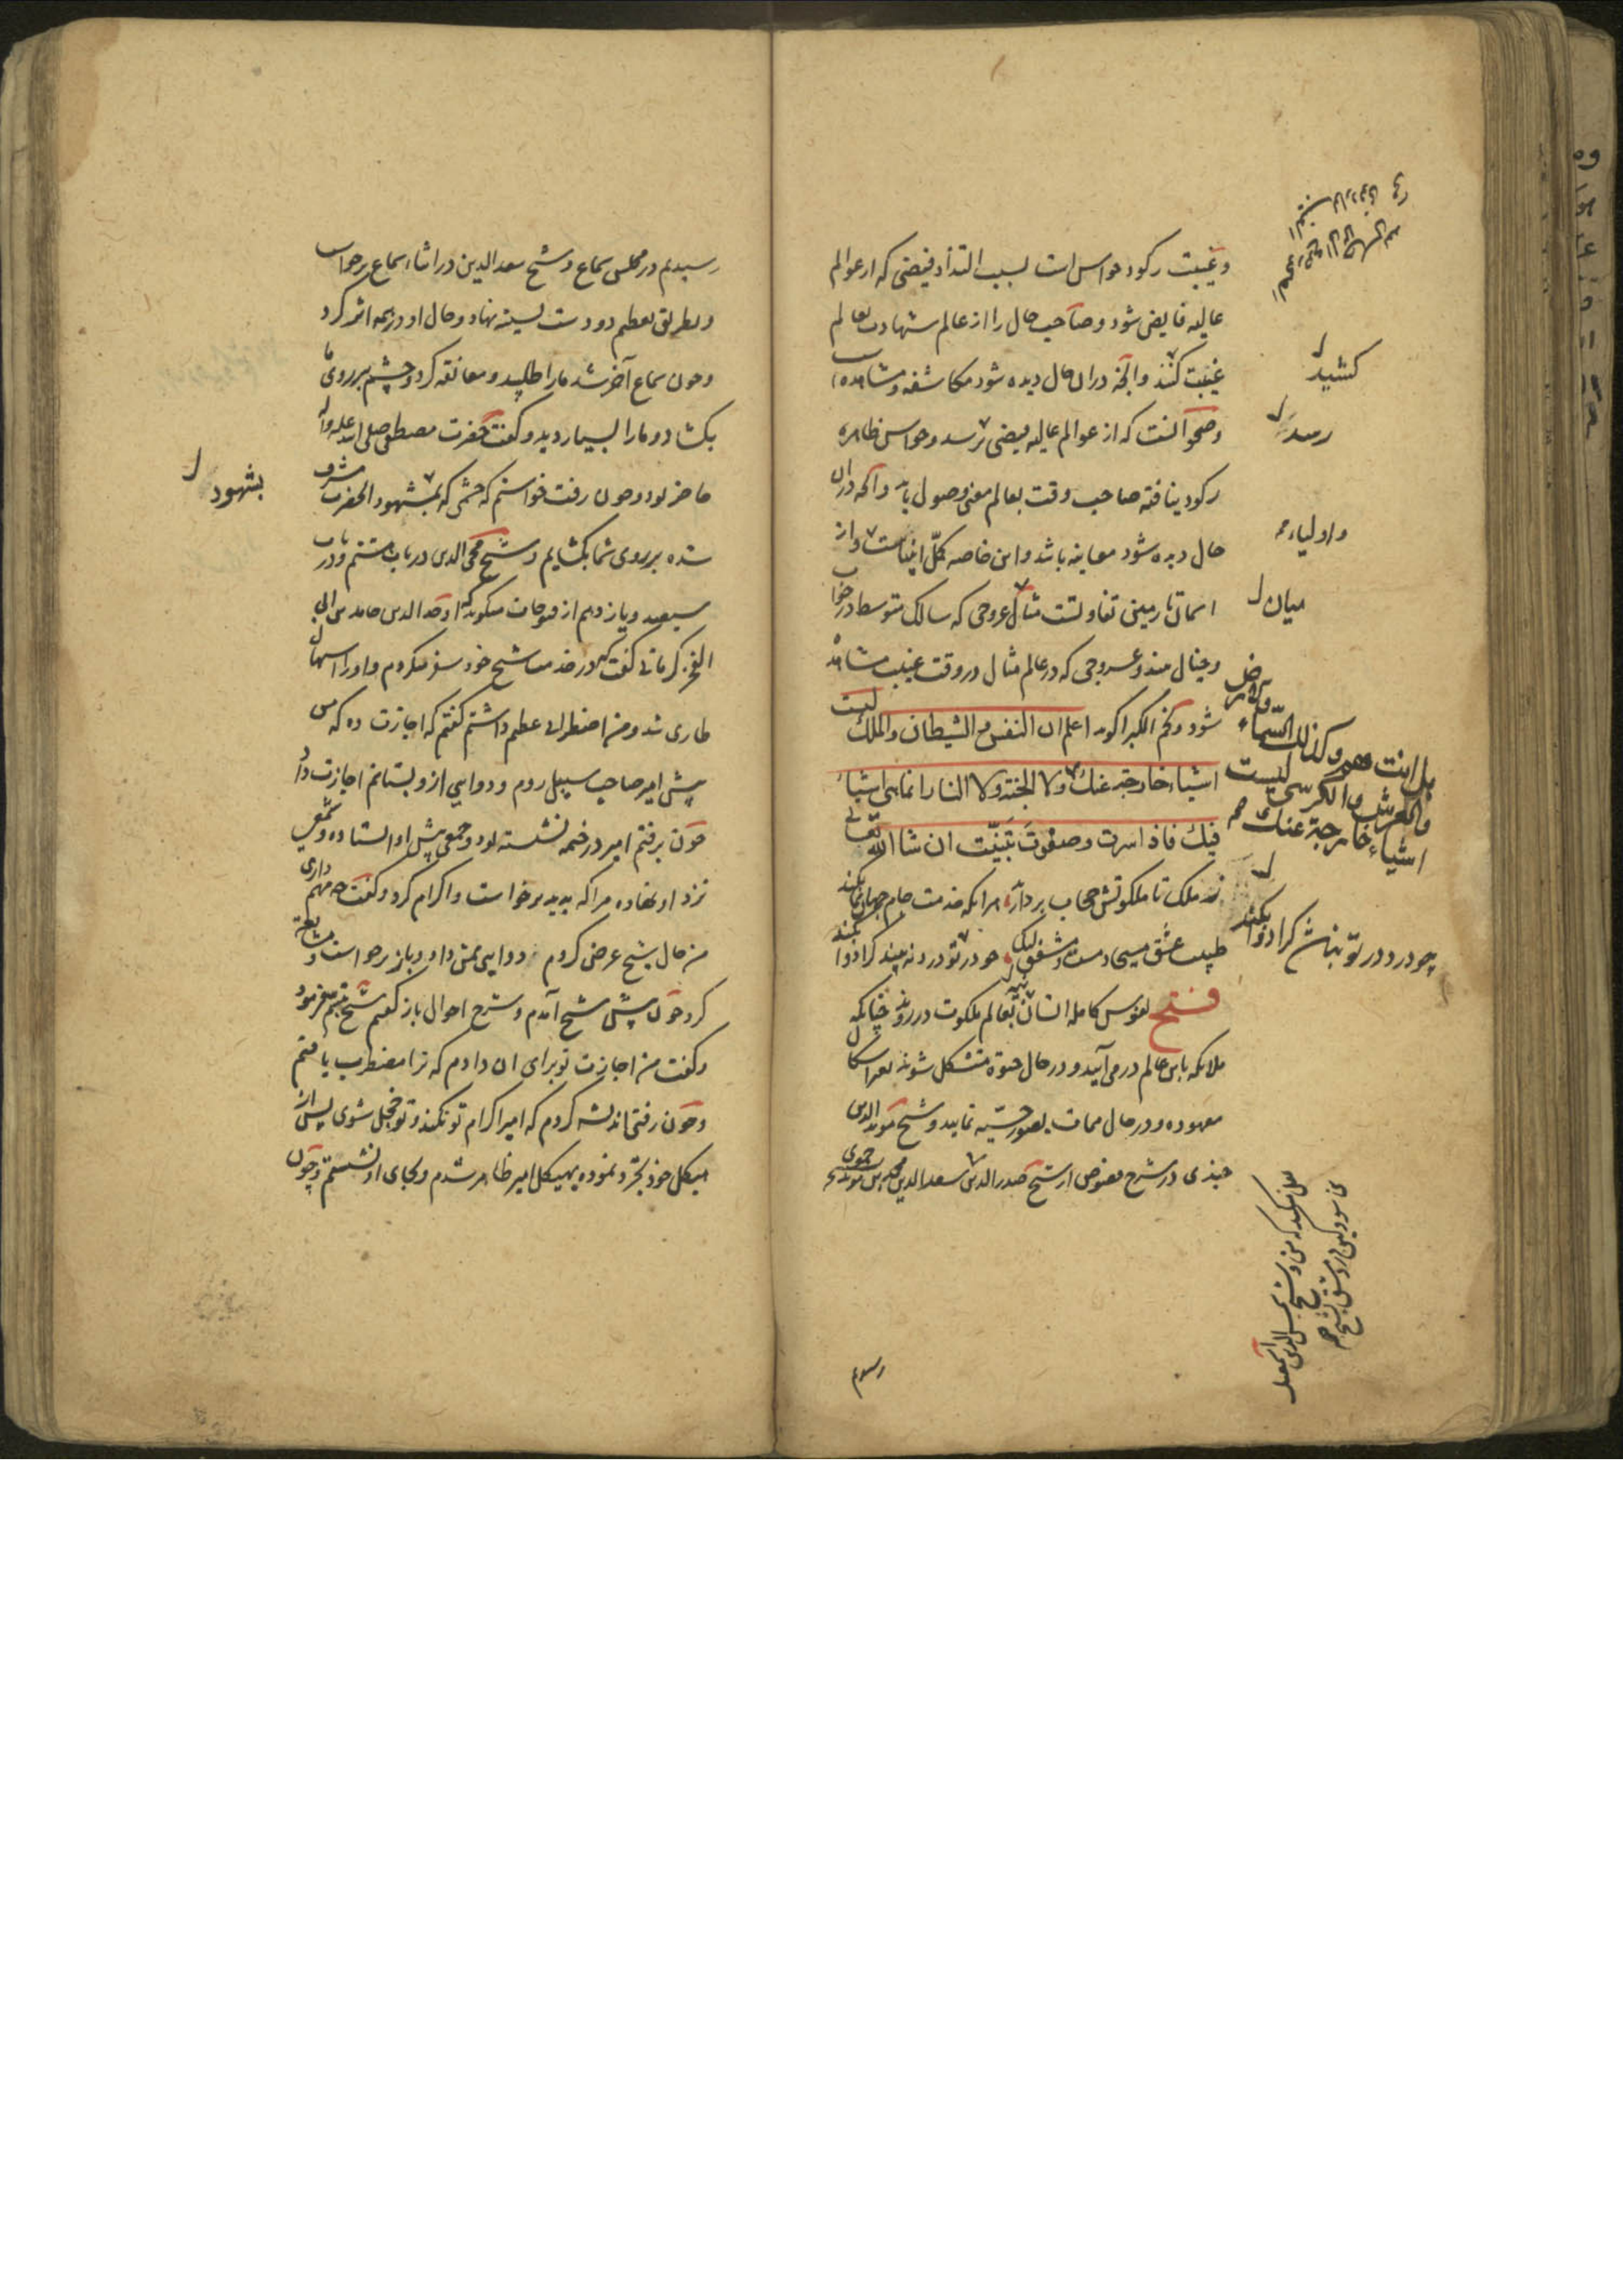 و غیبت رکود حواس است بسبب التذاذ فیضی که از عوالم
عالیه فایض شود و صاحب حال را از عالم شهادت بعالم
غیبت کشند و آنچه دران حال دیده شود مکاشفه و مشاهده
و صحو آنست که از عوالم عالیه فیضی برسد و حواس ظاهره
رکود نیافته صاحب وقت بعالم معنی وصول یابد و آنچه دران
حال دیده شود معاینه باشد و این خاصه کمّل انبیاست و از
اسمان تا زمین تفاوتست مثال عروجی که سالک متوسط در خواب
و خیال بیند و عروجی که در عالم مثال در وقت غیبت مشاهد
شود و نجم الکبرا گوید اعلم ان النفس و الشیطان و الملک لیست
اشیاء خارجة عنک و لا الجنة و لا النار انما هی اشیاء
فیک فاذا سرت و صفوت تبیّنت ان شا الله تعالی
ز ملک تا ملکوتش حجاب بردارند هر انکه خدمت جام جهان نما بکند
طبیب عشق مسیحا دمست و مشفق لیک چو درد تو درد نه بیند کرا دوا بکند
فتح نفوس کامله انسان بعالم ملکوت در روند چنانکه
ملائکه باین عالم درمی آیند و در حال حیوة متشکل شوند بغیر اشکال
معهوده و در حال ممات بصور حسّیه نمایند و شیخ مؤید الدین
جندی در شرح فصوص از شیخ صدر الدین سعد الدین محمد بن موید حموی
کشید
رسد
و اولیاء
میان
بل انت هو و کذلک السّماء و الارض
و العرش و الکرسی لیست
اشیاء خارجة عنک
چو درد در تو نبیند کرا دوا بکند
رسیدیم در مجلس سماع و شیخ سعد الدین در اثناء سماع برخواست
و بطریق تعظیم دو دست بسینه نهاد و حال او در همه اثر کرد
و چون سماع آخر شد ما را طلبید و معانقه کرد و چشم بر روی ما
بکشاد و ما را بسیار دید و گفت حضرت مصطفی صلی الله علیه و آله
حاضر بود و چون رفت خواستم که چشمی که بمشهود الحضرت مشرف
شده بر روی شما بکشایم و شیخ محی الدین در باب هشتم و در باب
سیصد و یازدهم از فتوحات میگوید که اوحد الدین حامد بن ابی
الفخر کرمانی گفت که در خدمت شیخ خود سفر میکردم و او را اسهال
طاری شد و من اضطراب عظیم داشتم گفتم که اجازت ده که من
پیش امیر صاحب سبیل روم و دوایی ازو بستانم اجازت داد
چون برفتم امیر در خیمه نشسته بود و جمعی پیش او ایستاده و شمعی
نزد او نهاده مرا که بدید برخواست و اکرام کرد و گفت چه مهم داری
من حال شیخ عرض کردم دوایی بمن داد و باز برخواست و مشایعة
کرد چون پیش شیخ آمدم و شرح احوال باز گفتم شیخ تبسّم فرمود
و گفت من اجازت تو برای ان دادم که ترا مضطرب یافتم
و چون رفتی اندیشه کردم که امیر اکرام تو نکند و تو خجل شوی پس از
هیکل خود تجرّد نموده بهیکل امیر ظاهر شدم و بجای او نشستم و چون
بشهود